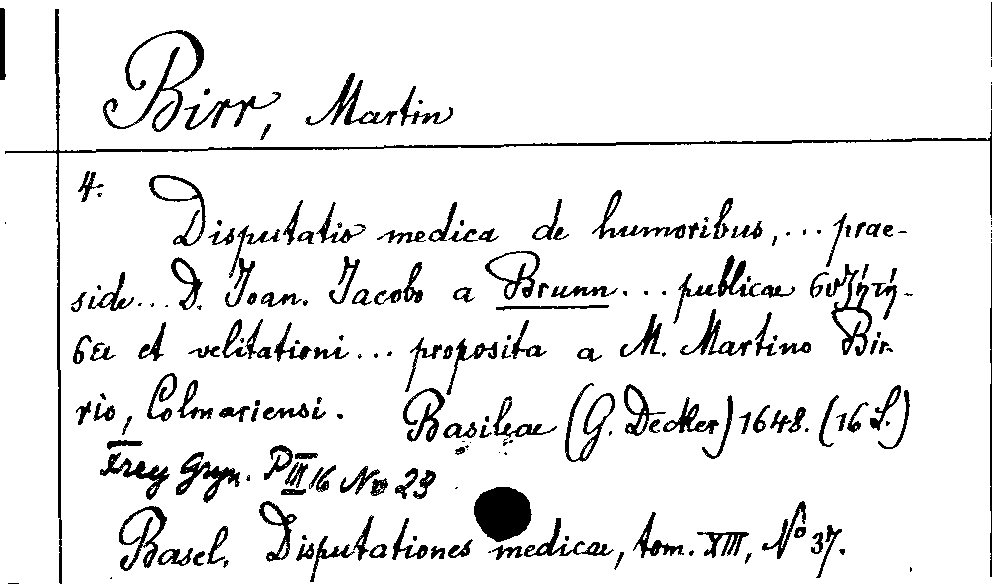 Birr, Martin
4.
Disputatio medica de humoribus, ... prae-
side ... D. Ioan. Jacobo a Brunn ... publicae συζητή-
σει et velitationi ... proposita a M. Martino Bir-
rio, Colmariensi. Basileae (G. Decker) 1648. (16 S.)
Frey Gryn. P III 16 No 23
Basel. Disputationes medicae, tom. XIII, No 37.